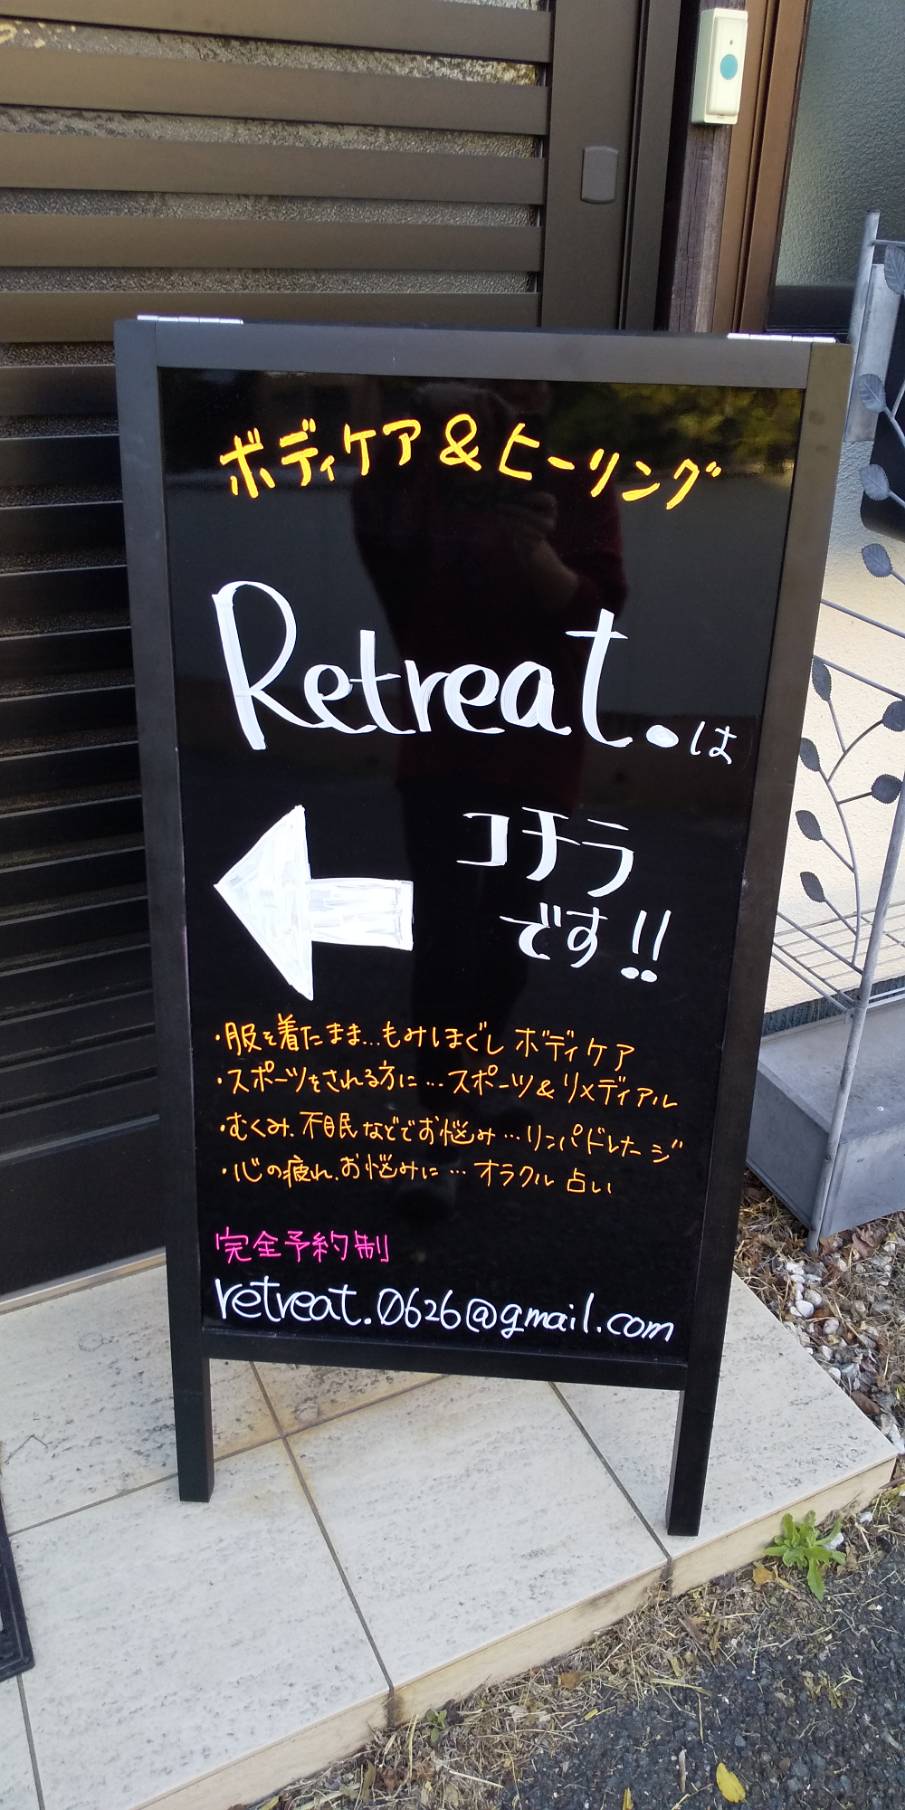 ボディケア＆ヒーリング
Retreat.は
コチラ
です!!
・服を着たまま…もみほぐし ボディケア
・スポーツをされる方に…スポーツ＆リメディアル
・むくみ、不眠などでお悩み…リンパドレナージ
・心の疲れ、お悩みに…オラクル占い
完全予約制
retreat.0626@gmail.com